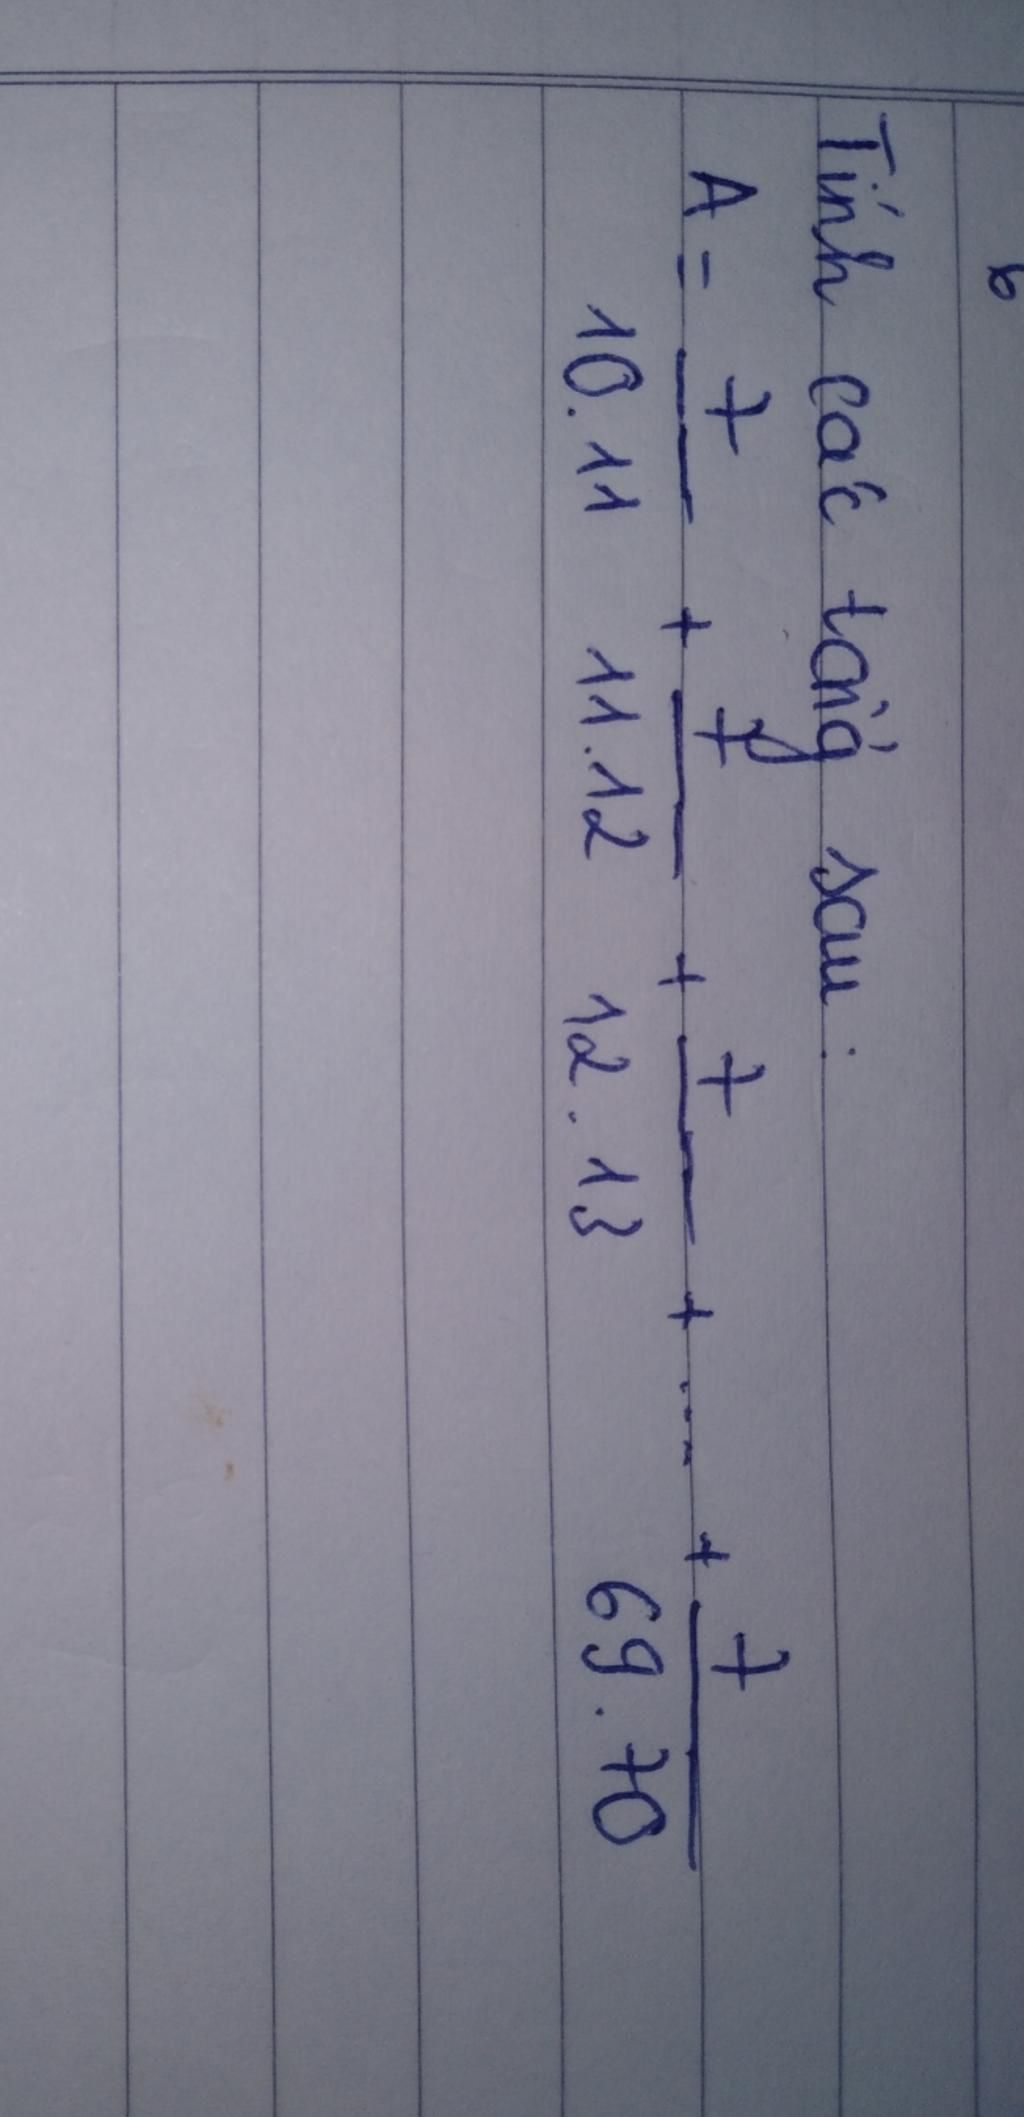 6
Tính các tổng sau:
A = 7/10.11 + 7/11.12 + 7/12.13 + .... + 7/69.70